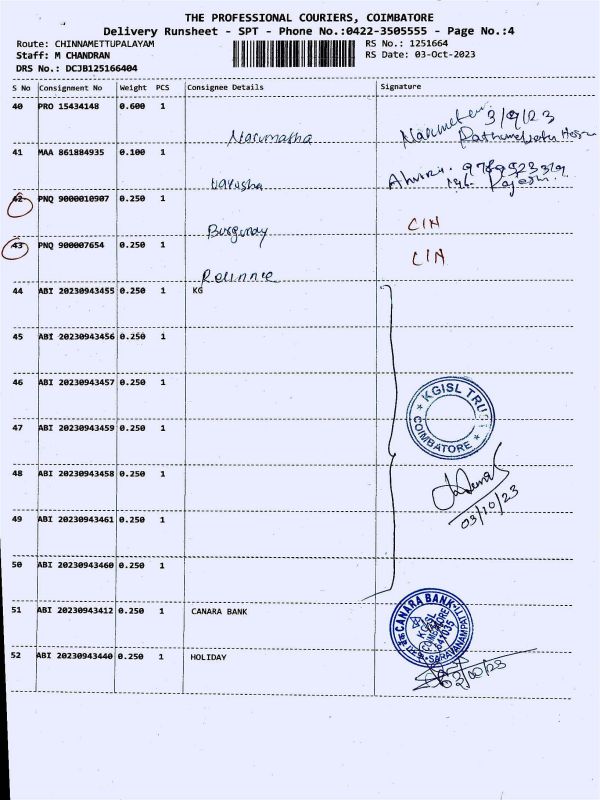 THE PROFESSIONAL COURIERS, COIMBATORE
Delivery Runsheet - SPT - Phone No.:0422-3505555 - Page No.:4
Route: CHINNAMETTUPALAYAM RS No.: 1251664
Staff: M CHANDRAN RS Date: 03-Oct-2023
DRS No.: DCJB125166404
S No Consignment No Weight PCS Consignee Details Signature
40 PRO 15434148 0.600 1
3/9/23
41 MAA 861884935 0.100 1
42 PNQ 9000010907 0.250 1
Burgundy CIN
43 PNQ 900007654 0.250 1
CIN
Reliance
44 ABI 20230943455 0.250 1 KG
45 ABI 20230943456 0.250 1
46 ABI 20230943457 0.250 1
KGISL TRUST
COIMBATORE
47 ABI 20230943459 0.250 1
48 ABI 20230943458 0.250 1
03/10/23
49 ABI 20230943461 0.250 1
50 ABI 20230943460 0.250 1
51 ABI 20230943412 0.250 1 CANARA BANK
CANARA BANK
KGISL
COIMBATORE
641035
SARAVANAMPATTI
52 ABI 20230943440 0.250 1 HOLIDAY